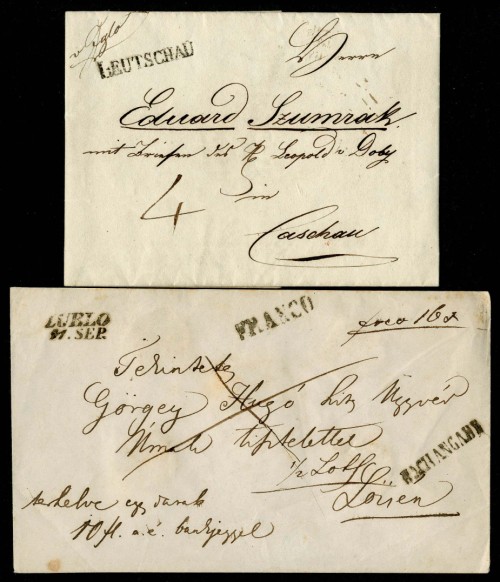 v Iglo
LEUTSCHAU
Herrn
Eduard Szumrák.
mit Briefen des H Leopold v Doby
4
in
Caschau
LUBLO
27. SEP.
FRANCO
frco 16x
Tekintetes
Görgey Hugó hites Ügyvéd
Úrnak tisztelettel
1/2 Loth
NACH ANGABE
Löcsen
terhelve egy darab
10 fl. a.é. bankjeggyel